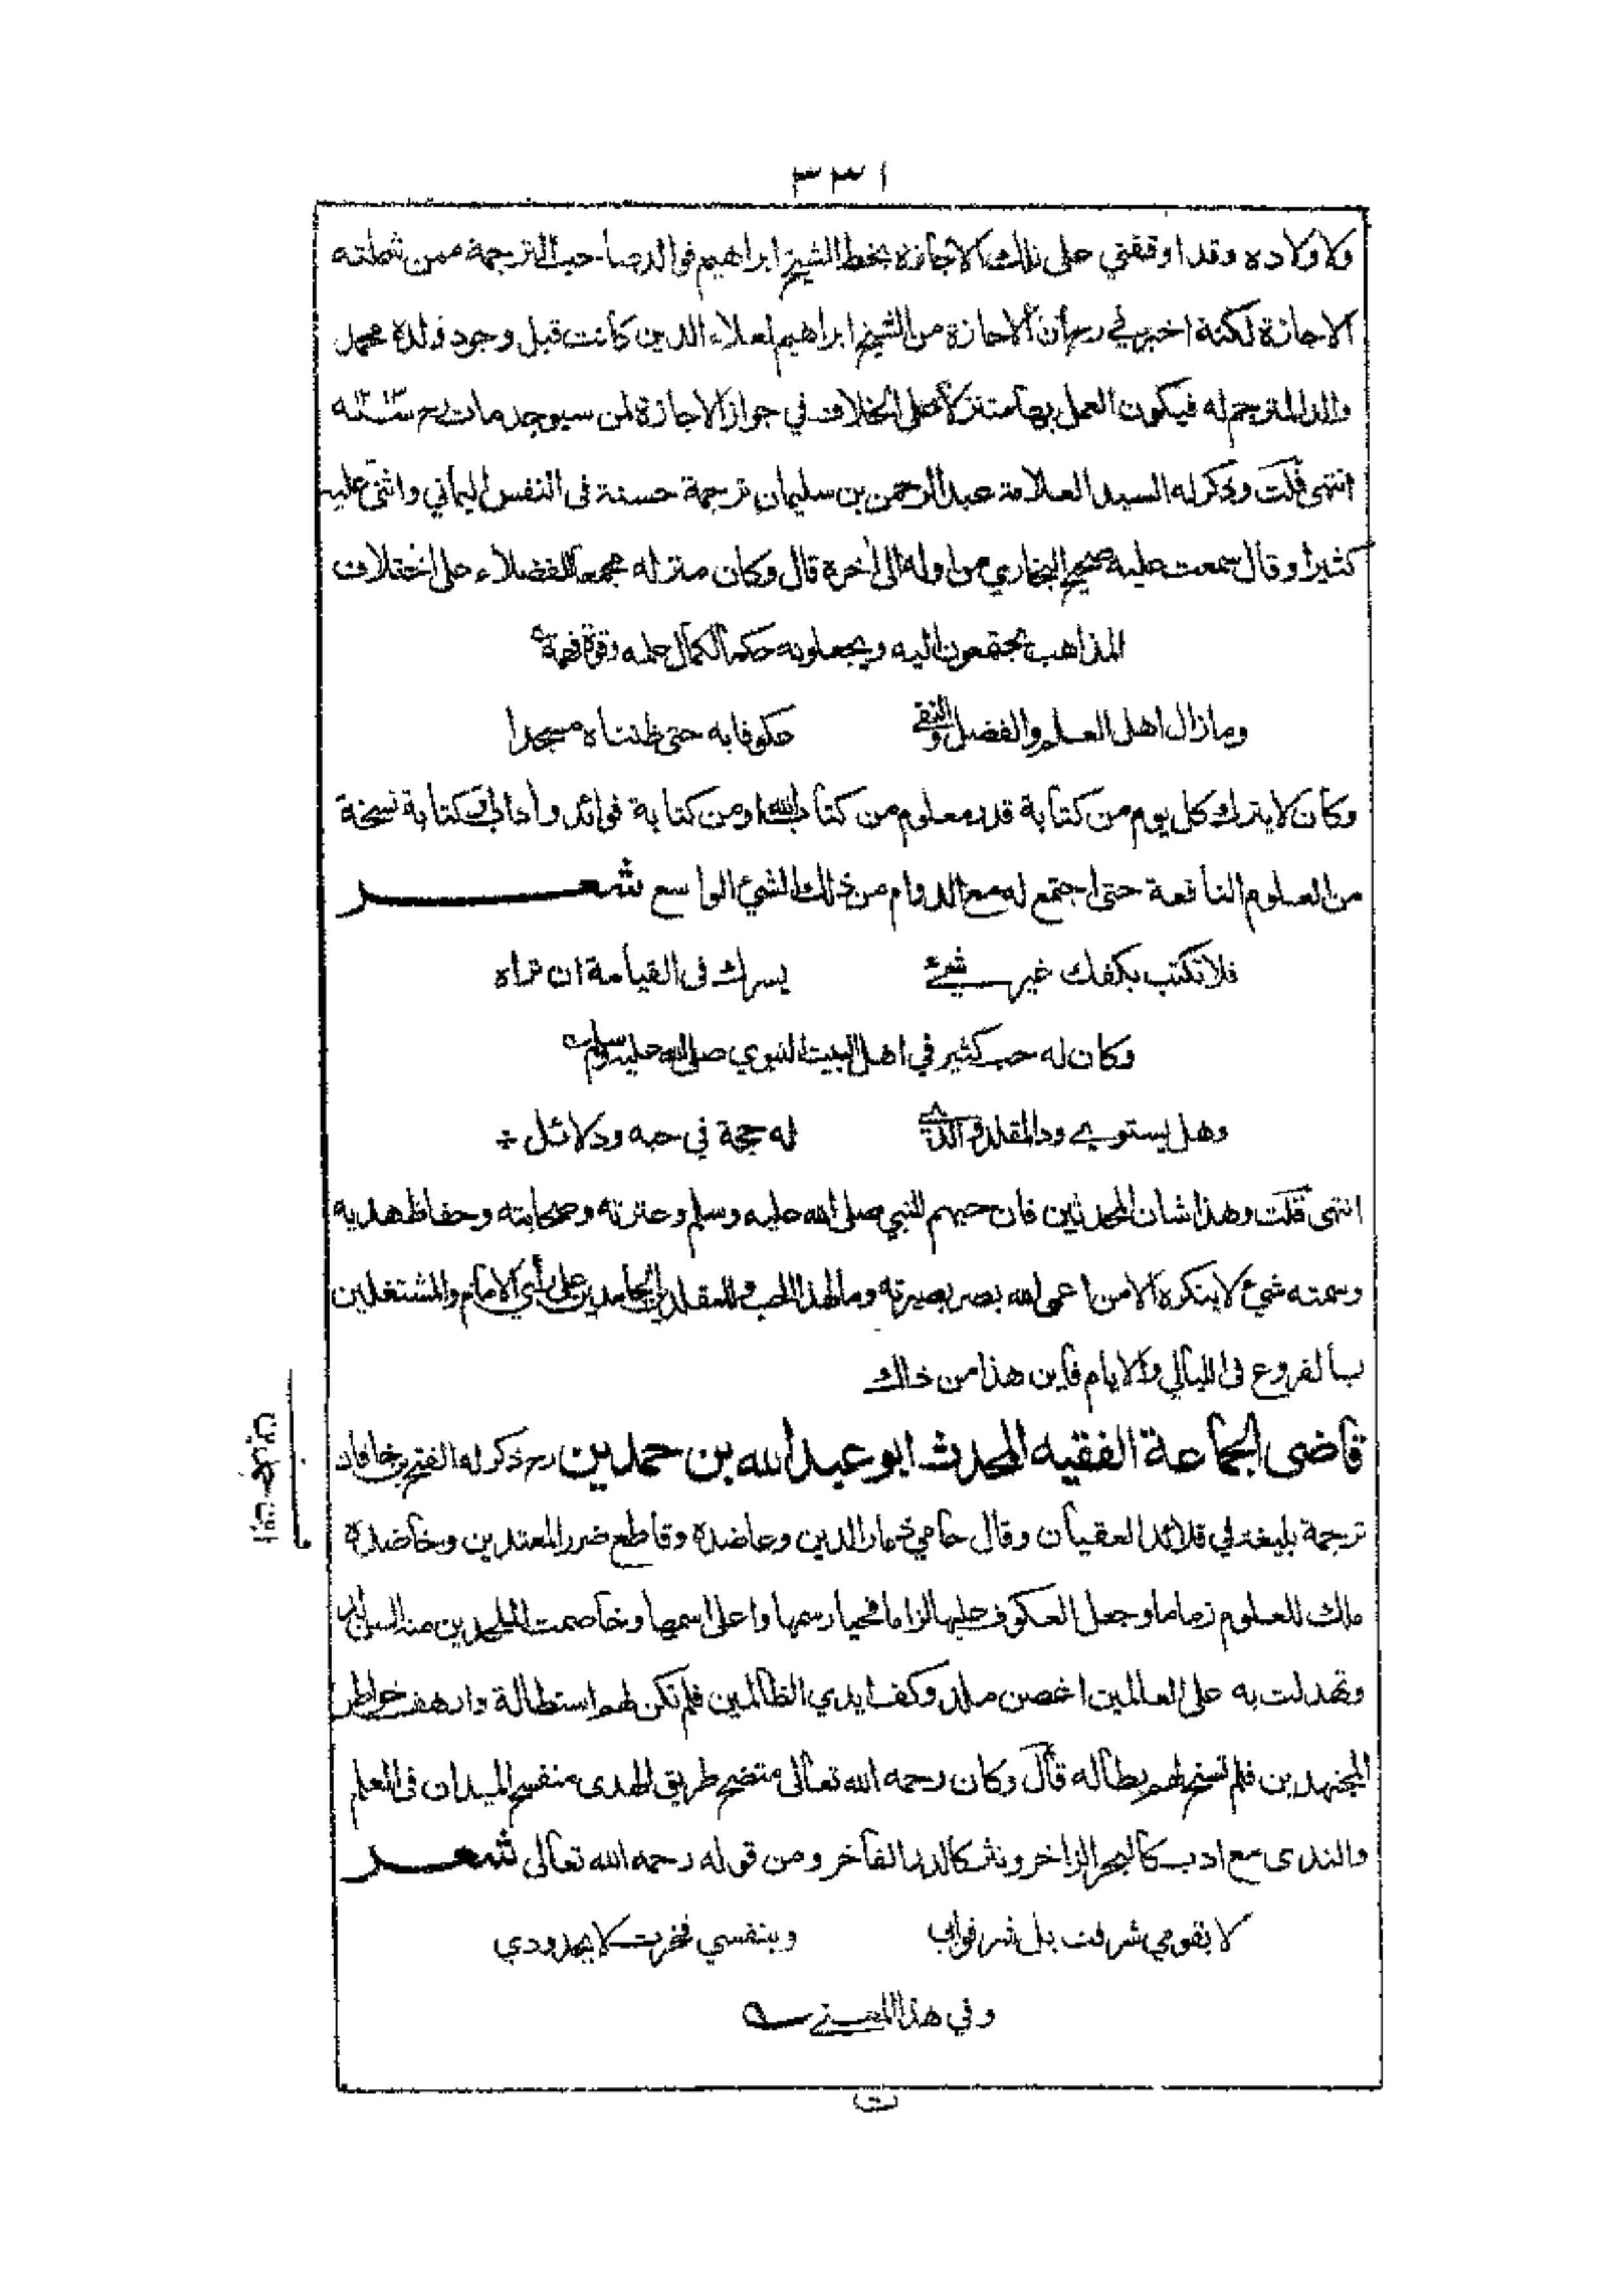 ٣٣١
ولاولاده وقد اوقفني على ذلك الاجازة بخط الشيخ ابراهيم فوالد صاحب الترجمة ممن شملته
الاجازة لكنه اخبرني رح ان الاجازة من الشيخ ابراهيم لعلاء الدين كانت قبل وجود ولده محمد
والد المترجم له فيكون العمل بها متنزلا على الخلاف في جواز الاجازة لمن سيوجد مات رح سنة
انتهى قلت وذكر له السيد العلامة عبد الرحمن بن سليمان ترجمة حسنة فى النفس اليماني واثنى عليه
كثيرا وقال سمعت عليه صحيح البخاري من اوله الى أخره قال وكان منزله مجمعا للفضلاء على اختلاف
المذاهب يجتمعون اليه ويجعلونه حكما لكمال علمه وقوة فهمه
ومازال اهل العلم والفضل والتقى عكوفا به حتى ظنناه مسجدا
وكان لا يترك كل يوم من كتابة قدر معلوم من كتاب الله او من كتابة فوائد وأداب او كتابة نسخة
من العلوم النافعة حتى اجتمع له مع الدوام من ذلك الشيء الواسع شعر
فلا تكتب بكفك غير شيء يسرك فى القيامة ان تراه
وكان له حب كثير في اهل البيت النبوي صلى الله عليه وسلم
وهل يستوي ود المقلد والذي له حجة في حبه ودلائل ÷
انتهى قلت وهذا شان المحدثين فان حبهم للنبي صلى الله عليه وسلم وعترته وصحابته وحفاظ هديه
وسمته شيء لا ينكره الا من اعمى الله بصر بصيرته وما لهذا الحب وللمقلدين الجامدين على رأي الامام والمشتغلين
بالفروع فى الليالي والايام فأين هذا من ذلك
قاضى الجماعة الفقيه المحدث ابو عبد الله بن حمدين رح ذكر له الفتح بن خاقان
ترجمة بليغة في قلائد العقيان وقال حامي ذمار الدين وعاضده وقاطع ضرر المعتدين وخاضده
ملك للعلوم زماما وجعل العكوف عليها لزاما فحيا رسمها واعلى اسمها وخاصمت الملحدين منه السن لد
وتهدلت به على العالمين اغصن ملد وكف ايدي الظالمين فلم تكن لهم استطالة وارهف خواطر
المجتهدين فلم تسنح لهم بطاله قال وكان رحمه الله تعالى متضح طريق الهدى منفسح الميدان فى العلم
والندى مع ادب كالبحر الزاخر ونثر كالدر الفاخر ومن قوله رحمه الله تعالى شعر
لا بقومي شرفت بل شرفوا بي وبنفسي فخرت لا بجدودي
وفي هذا المعنى
ت